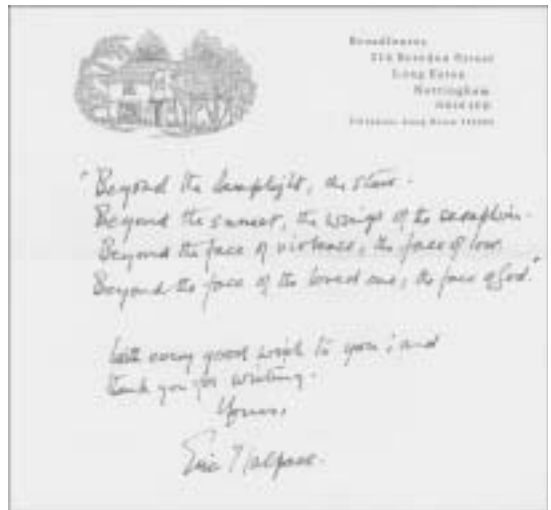 Broadleaves
216 Breedon Street
Long Eaton
Nottingham
"Beyond the lamplight, the stars.
Beyond the sunset, the wings of the seraphim.
Beyond the face of violence, the face of love.
Beyond the face of the loved one, the face of God."
With every good wish to you; and
thank you for writing.
Yours,
Eric Malpass.